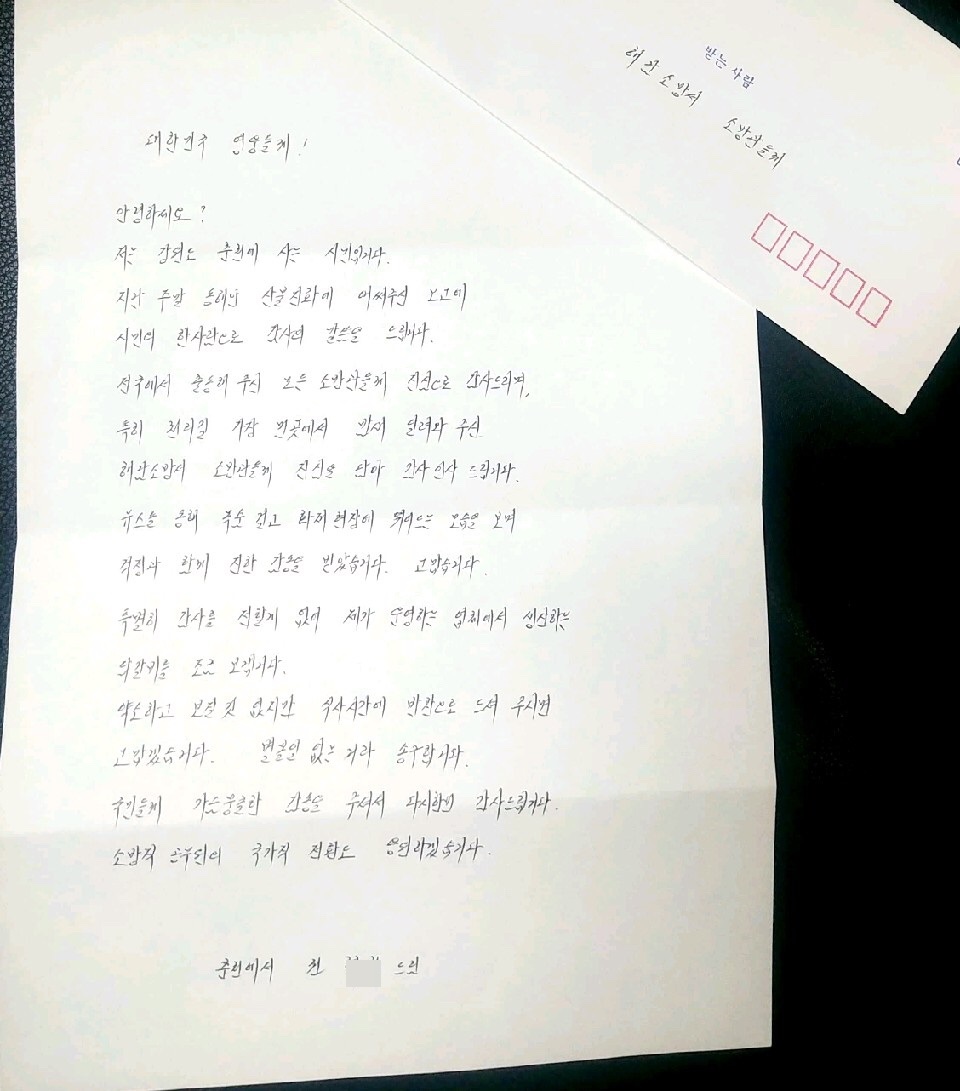 받는 사람
해남 소방서 소방관들께
대한민국 영웅들께!
안녕하세요?
저는 강원도 춘천에 사는 시민입니다.
지난 주말 동해안 산불진화에 애써주신 노고에
시민의 한사람으로 감사의 말씀을 드립니다.
전국에서 출동해 주신 모든 소방관들께 진심으로 감사드리며,
특히 천리길 가장 먼곳에서 밤새 달려와 주신
해남소방서 소방관들께 진심을 담아 감사 인사 드립니다.
뉴스를 통해 목숨 걸고 화재현장에 뛰어드는 모습을 보며
걱정과 함께 진한 감동을 받았습니다. 고맙습니다.
특별히 감사를 전할게 없어 제가 운영하는 업체에서 생산하는
닭갈비를 조금 보냅니다.
약소하고 보잘 것 없지만 식사시간에 반찬으로 드셔 주시면
고맙겠습니다. 별볼일 없는 거라 송구합니다.
국민들께 가슴뭉클한 감동을 주셔서 다시한번 감사드립니다.
소방직 공무원의 국가직 전환도 응원하겠습니다.
춘천에서 드림